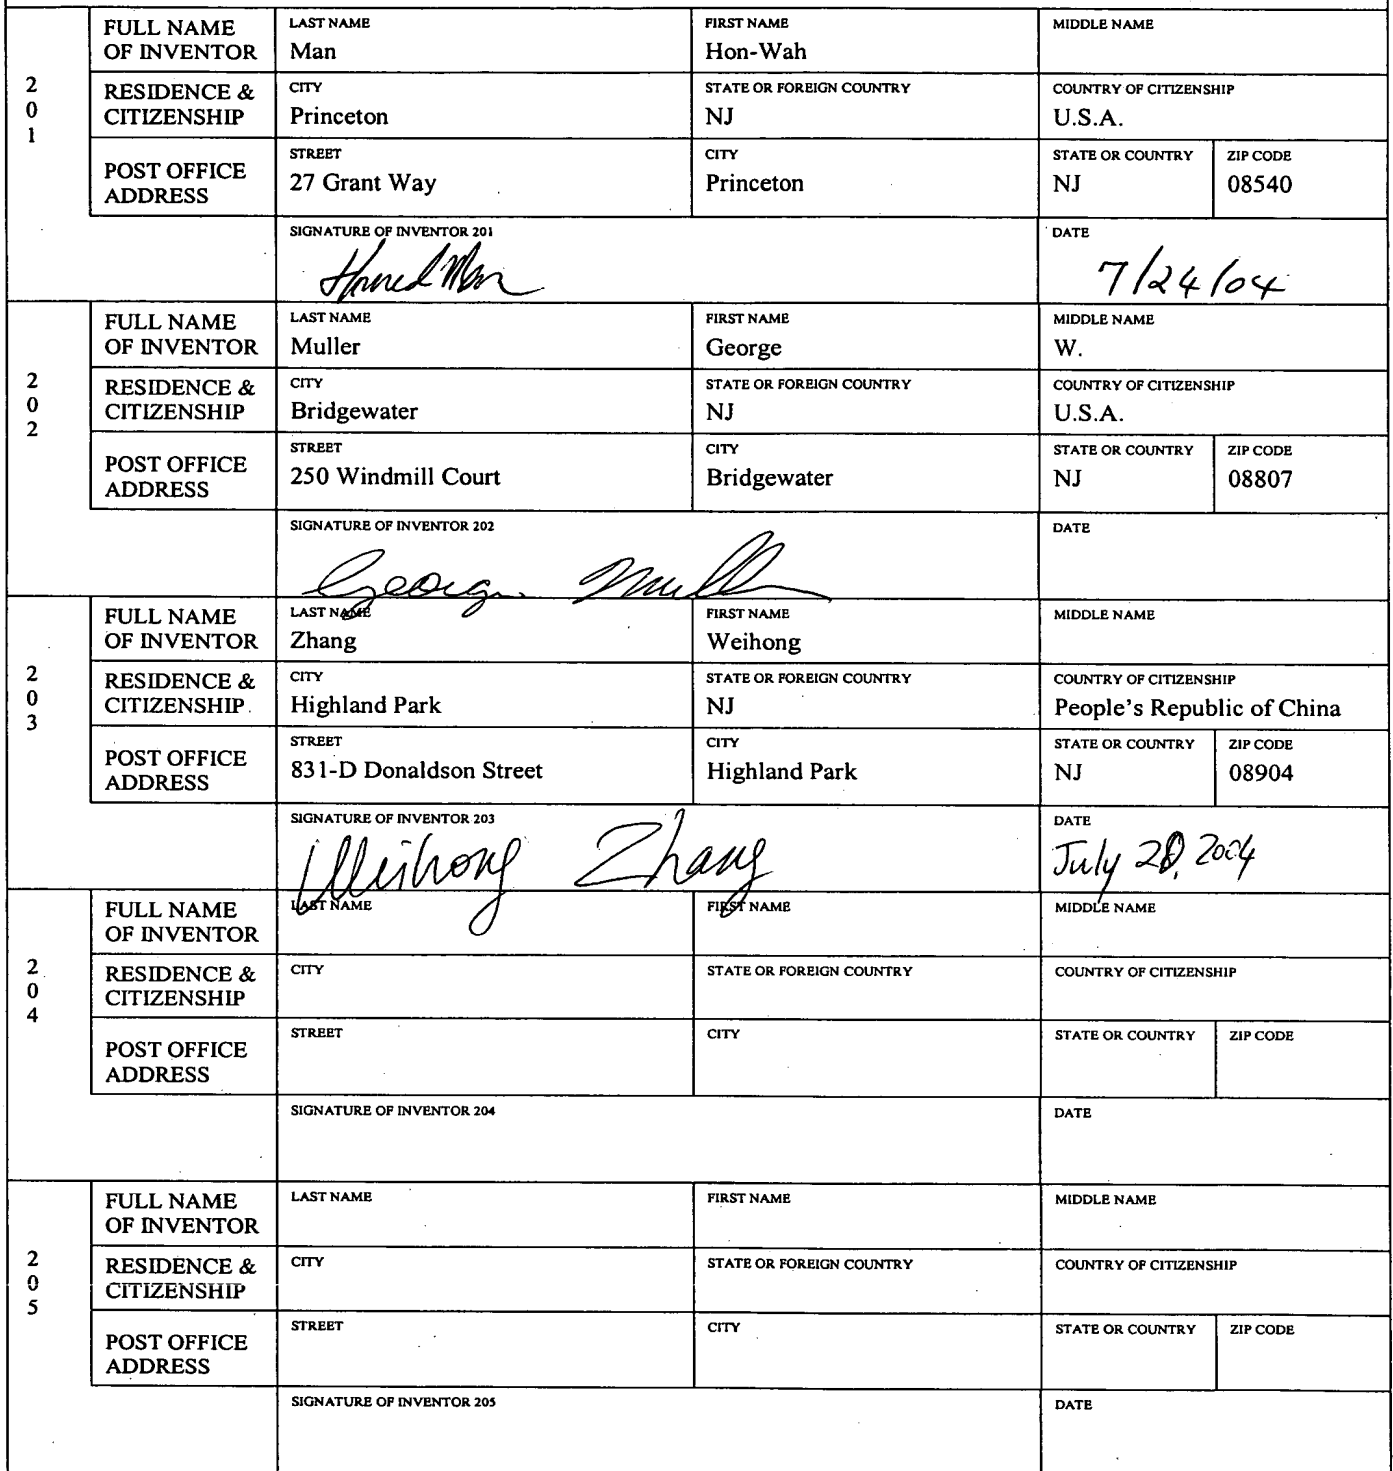 FULL NAME OF INVENTOR
LAST NAME
Man
FIRST NAME
Hon-Wah
MIDDLE NAME
201
RESIDENCE & CITIZENSHIP
CITY
Princeton
STATE OR FOREIGN COUNTRY
NJ
COUNTRY OF CITIZENSHIP
U.S.A.
POST OFFICE ADDRESS
STREET
27 Grant Way
CITY
Princeton
STATE OR COUNTRY
NJ
ZIP CODE
08540
SIGNATURE OF INVENTOR 201
Man
DATE
7/24/04
FULL NAME OF INVENTOR
LAST NAME
Muller
FIRST NAME
George
MIDDLE NAME
W.
202
RESIDENCE & CITIZENSHIP
CITY
Bridgewater
STATE OR FOREIGN COUNTRY
NJ
COUNTRY OF CITIZENSHIP
U.S.A.
POST OFFICE ADDRESS
STREET
250 Windmill Court
CITY
Bridgewater
STATE OR COUNTRY
NJ
ZIP CODE
08807
SIGNATURE OF INVENTOR 202
George Muller
DATE
FULL NAME OF INVENTOR
LAST NAME
Zhang
FIRST NAME
Weihong
MIDDLE NAME
203
RESIDENCE & CITIZENSHIP
CITY
Highland Park
STATE OR FOREIGN COUNTRY
NJ
COUNTRY OF CITIZENSHIP
People's Republic of China
POST OFFICE ADDRESS
STREET
831-D Donaldson Street
CITY
Highland Park
STATE OR COUNTRY
NJ
ZIP CODE
08904
SIGNATURE OF INVENTOR 203
Weihong Zhang
DATE
July 28, 2004
FULL NAME OF INVENTOR
LAST NAME
FIRST NAME
MIDDLE NAME
204
RESIDENCE & CITIZENSHIP
CITY
STATE OR FOREIGN COUNTRY
COUNTRY OF CITIZENSHIP
POST OFFICE ADDRESS
STREET
CITY
STATE OR COUNTRY
ZIP CODE
SIGNATURE OF INVENTOR 204
DATE
FULL NAME OF INVENTOR
LAST NAME
FIRST NAME
MIDDLE NAME
205
RESIDENCE & CITIZENSHIP
CITY
STATE OR FOREIGN COUNTRY
COUNTRY OF CITIZENSHIP
POST OFFICE ADDRESS
STREET
CITY
STATE OR COUNTRY
ZIP CODE
SIGNATURE OF INVENTOR 205
DATE